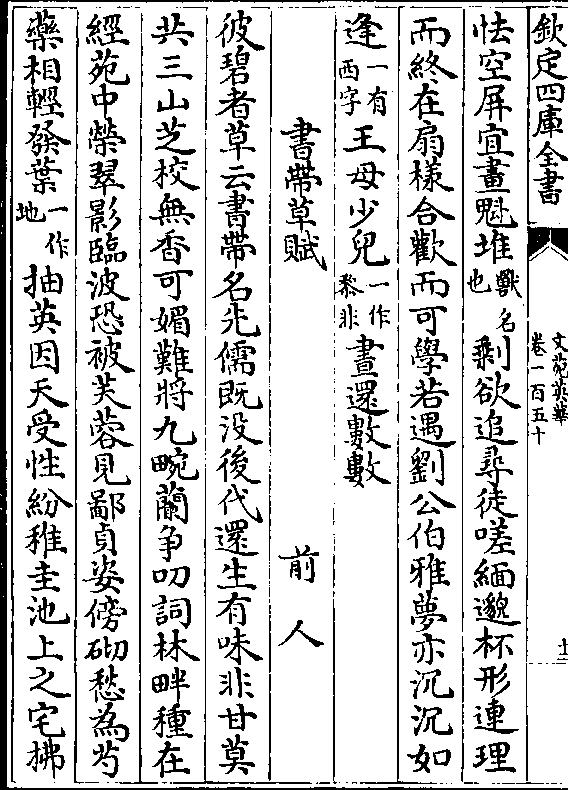 欽定四庫全書
文苑英華
卷一百五十
十二
怯空屏宜畫魁堆獸名也剩欲追尋徒嗟緬邈杯形連理
而終在扇様合歡而可學若遇劉公伯雅夢亦沉沉如
逢一有西字王母少兒一作黎非晝還數數
書帶草賦 前人
彼碧者草云書帶名先儒既没後代還生有味非甘莫
共三山芝校無香可媚難將九畹蘭争叨詞林畔種在
經苑中榮翠影臨波恐被芙蓉見鄙貞姿傍砌愁為芍
藥相輕發葉一作地抽英因天受性紛稚圭池上之宅拂